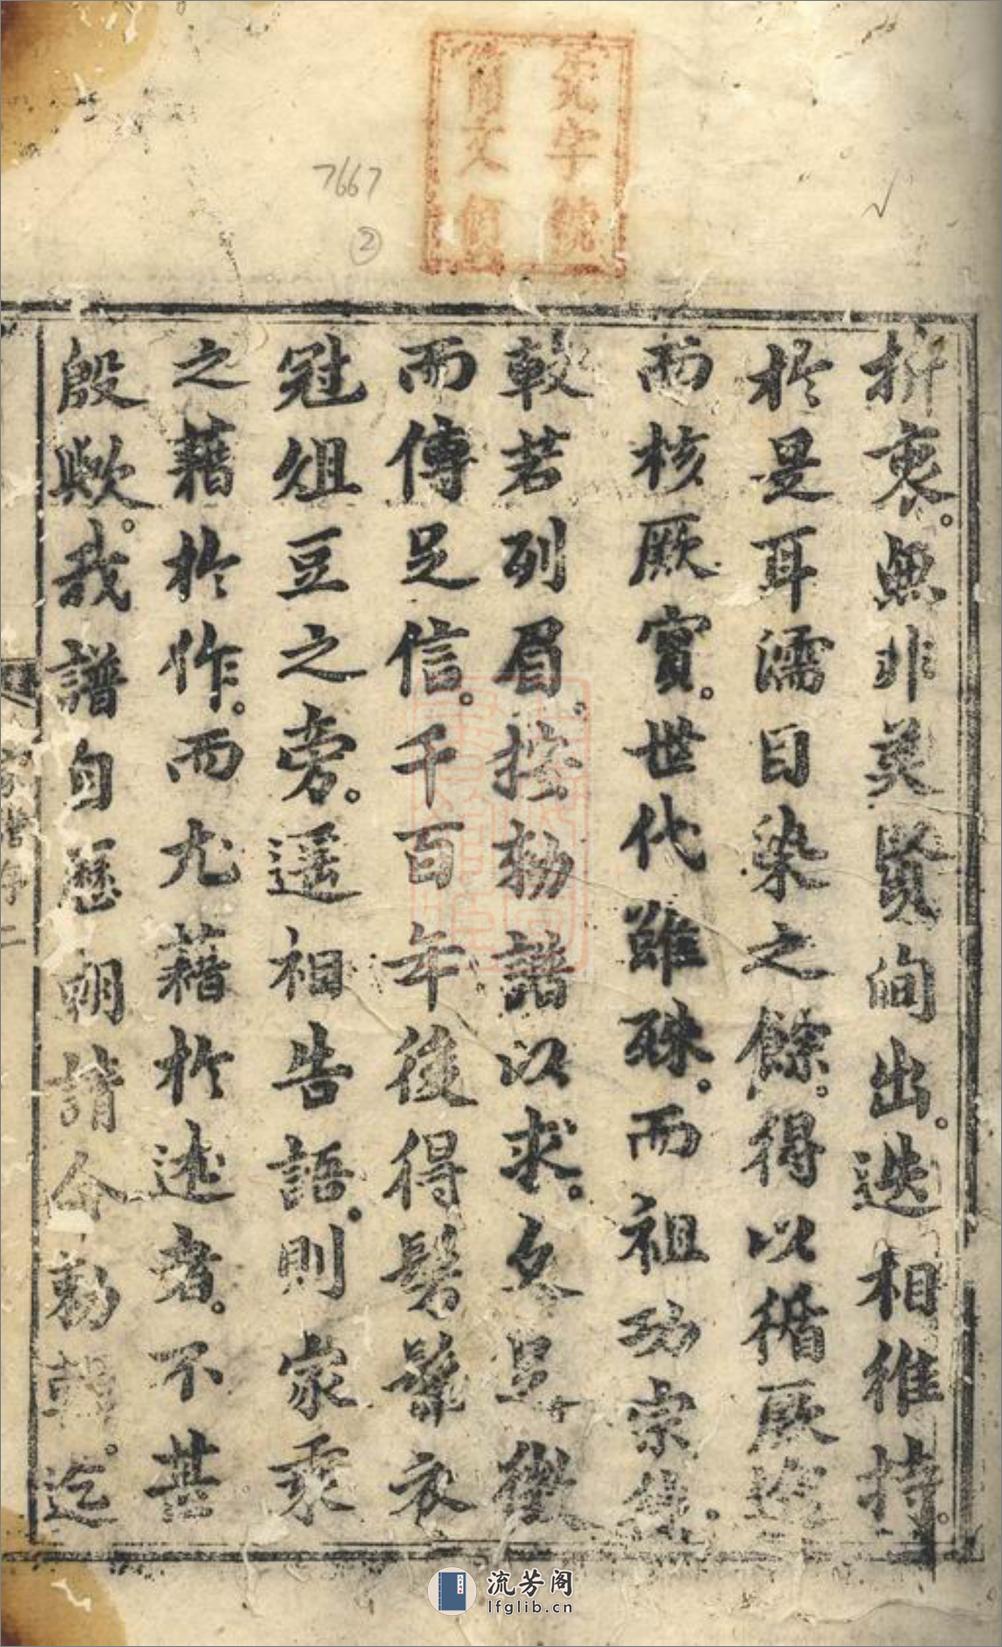 7667
②
折衷。無非英賢間出。迭相維持。
於是耳濡目染之餘。得以循厥
而核厥實。世代雖殊。而祖功宗德。
較若列眉。按勅譜以求。文足徵
而傳足信。千百年後得髣髴衣
冠俎豆之旁。遥相告語。則家乘
之藉於作。而尤藉於述者。不甚
殷歟。我譜自歷朝請命勅輯。迄
家譜序 二
流芳阁
lfglib.cn